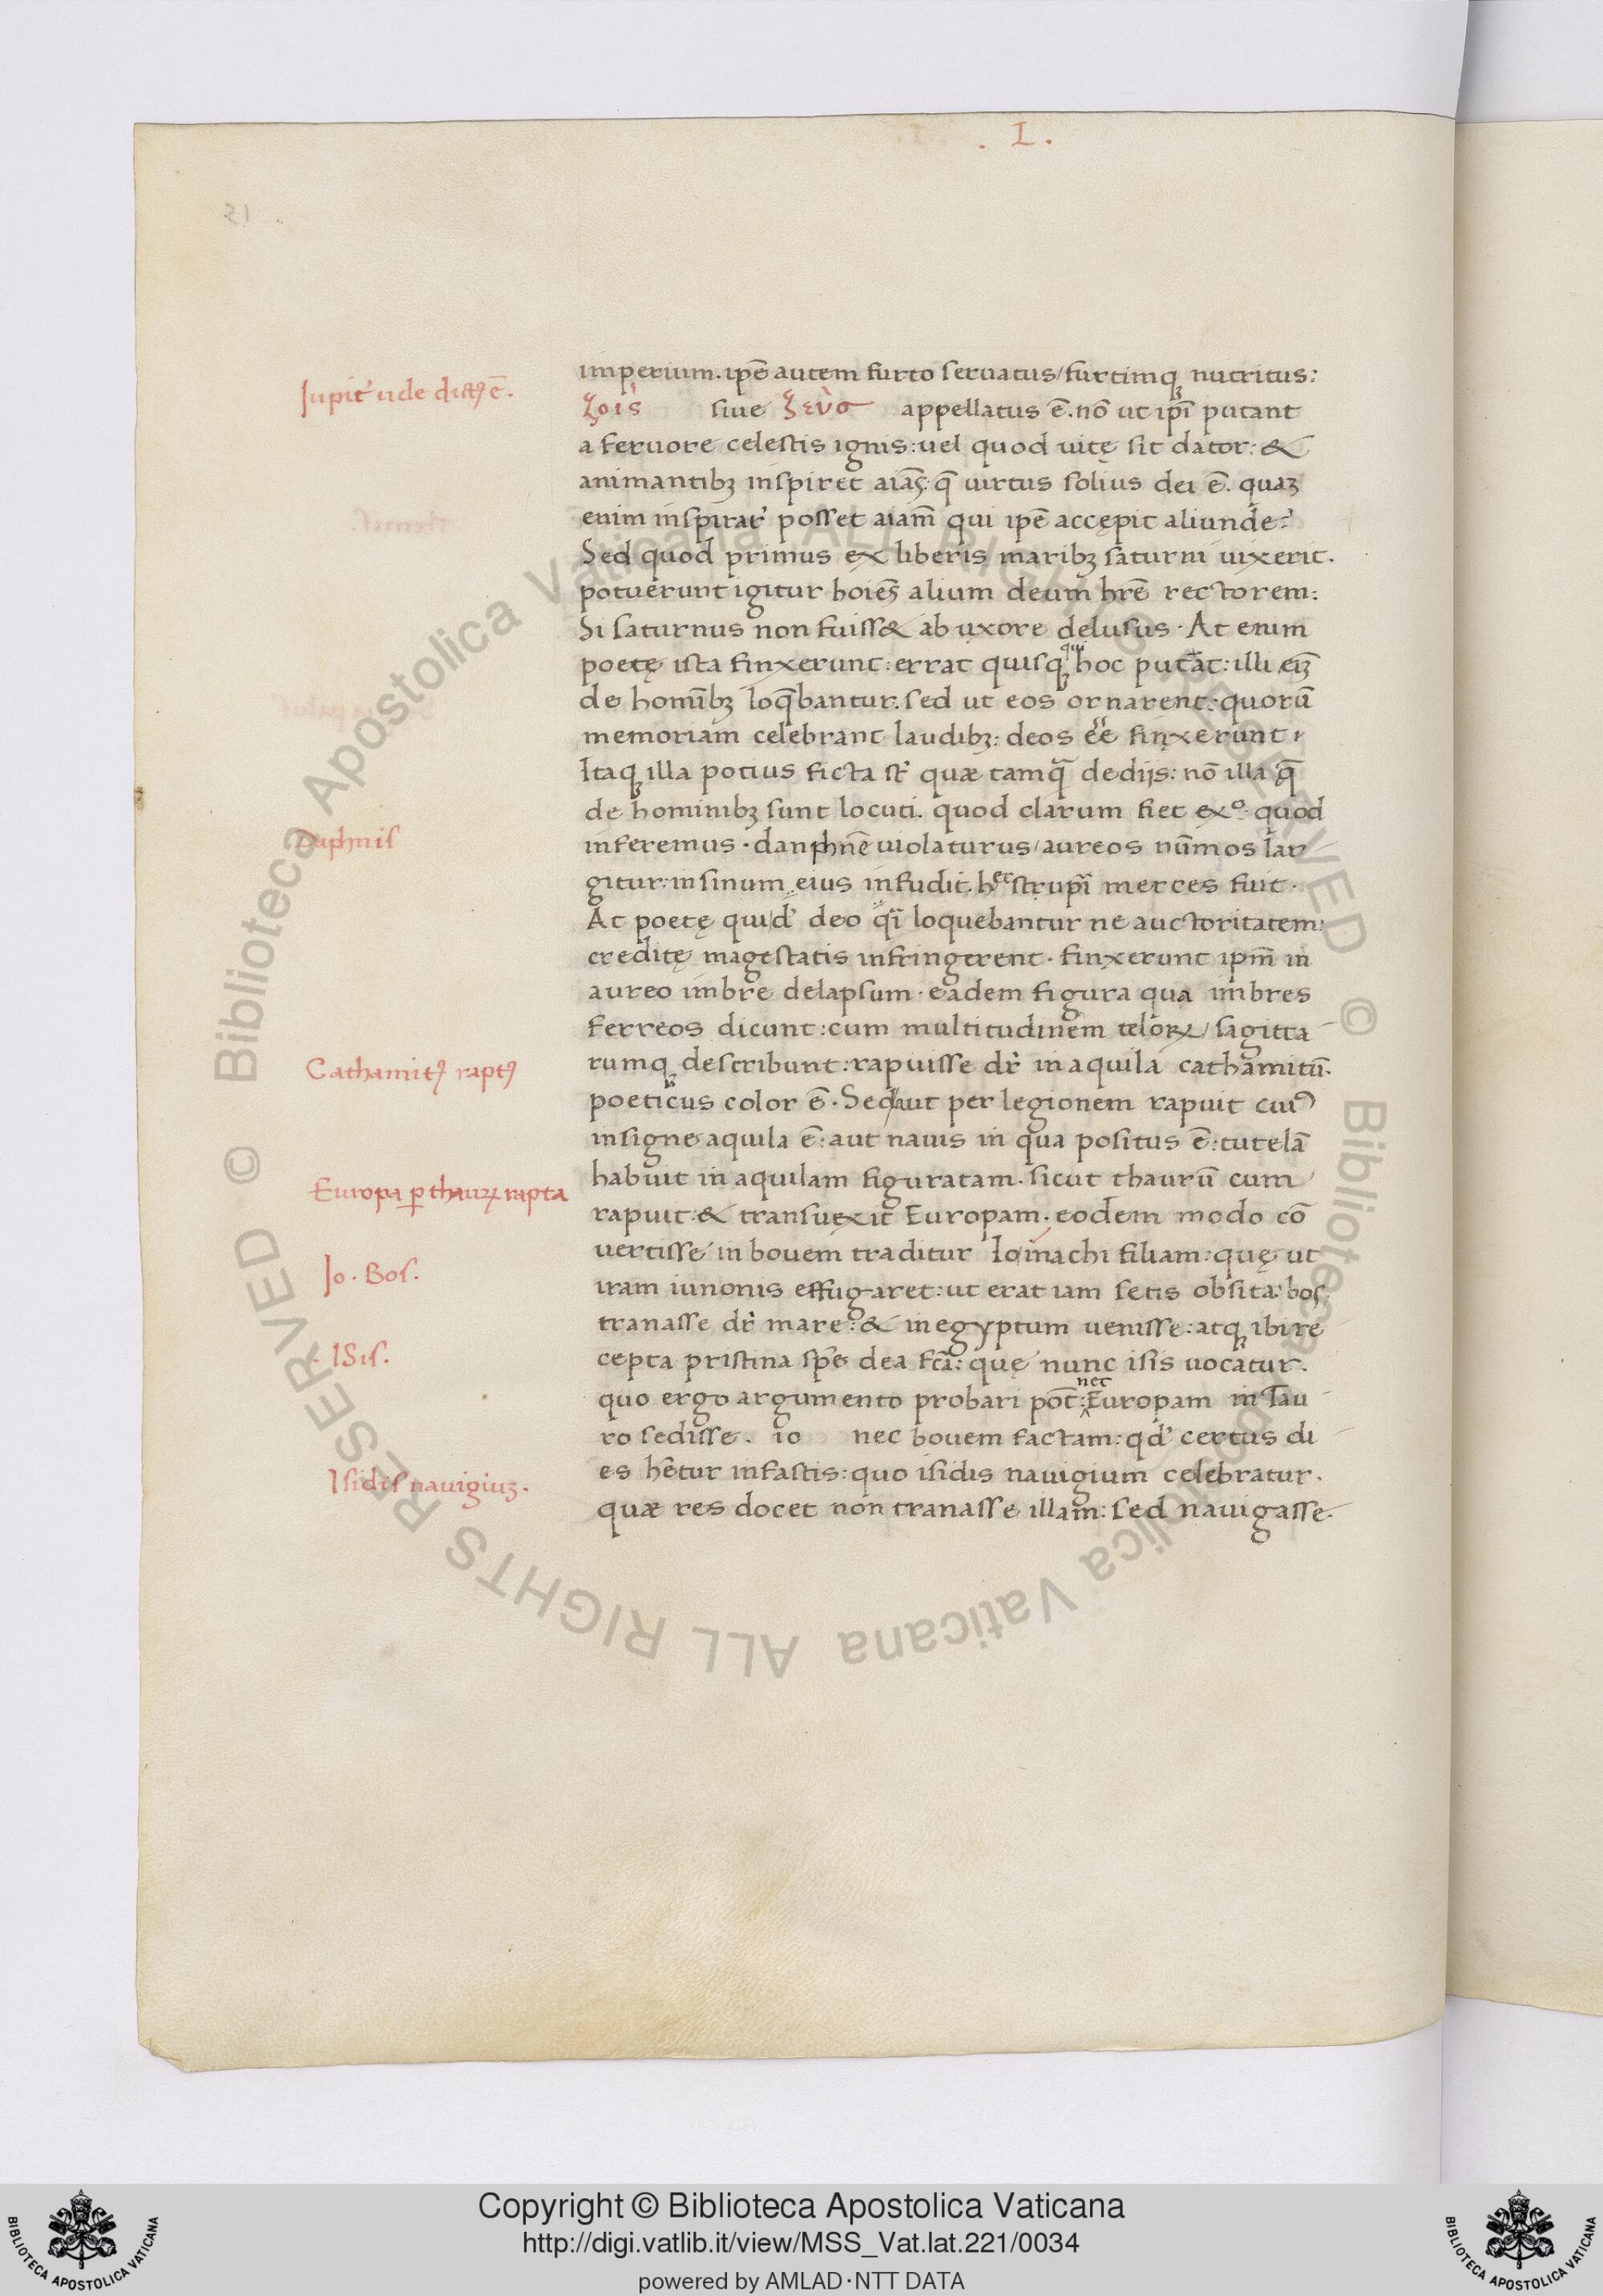 . I .
imperium. ip̄e autem furto seruatus/furtimqꝫ nutritus:
Jupit᷑ ūde dictꝰ ē.
ζοις siue ζεὺσ appellatus ē. nō ut ip̄i putant
a feruore celestis ignis: uel quod uitę sit dator: &
animantibꝫ inspiret aīas: q̄ uirtus solius dei ē. quaꝫ
enim inspirar᷑ posset aīam qui ip̄e accępit aliunde?
Sed quod primus ex liberis maribꝫ saturni uixerit.
potuerunt igitur hoīes alium deum hr̄e rectorem:
Si saturnus non fuiss& ab uxore delusus. At enim
poetę ista finxerunt: errat quisqꝫ qui hoc putat: illi eiꝫ
de homībꝫ loq̄bantur. sed ut eos ornarent: quorū
memoriam celebrant laudibꝫ: deos eē finxerunt.
Itaqꝫ illa potius ficta st̄ quæ tamq̄ dedijs: nō illa q̄
de hominibꝫ sunt locuti. quod clarum fiet exº. quod
Daphnis
inferemus. danphnē uiolaturus/aureos nūmos lar
gitur: in sinum eius infudit. hec strupī merces fuit.
At poetę qui d᷑ deo q̄i loquebantur ne auctoritatem:
creditę magestatis infringerent. finxerunt ip̄m in
aureo imbre delapsum. eadem figura qua imbres
ferreos dicunt: cum multitudinem teloꝝ/sagitta
Cathamitꝰ raptꝰ
rumqꝫ describunt: rapuisse dr̄ in aquila cathamitū.
poeticus color ē. Sed/aut per legionem rapuit cuiꝰ
insigne aquila ē: aut nauis in qua positus ē: tutelā
habuit in aquilam figuratam. sicut thaurū cum
Europa ꝑ thauꝝ rapta
rapuit: & transuexit Europam. eodem modo cō
uertisse in bouem traditur Io/inachi filiam: quę ut
Jo. Bos.
iram iunonis effugaret: ut erat iam setis obsita: bos
tranasse dr̄ mare: & inegyptum uenisse: atqꝫ ibi re
. ISis.
cepta pristina sp̄e dea fc̄a: quę nunc isis uocatur.
quo ergo argumento probari pōt: nec Europam in Tau
ro sedisse. io nec bouem factam: qd᷑ certus di
Isidis nauigiuꝫ.
es hētur infastis: quo isidis nauigium celebratur.
quæ res docet non tranasse illam: sed nauigasse.
© Biblioteca Apostolica Vaticana ALL RIGHTS RESERVED © Biblioteca Apostolica Vaticana ALL RIGHTS RESERVED
BIBLIOTECA APOSTOLICA VATICANA
Copyright © Biblioteca Apostolica Vaticana
http://digi.vatlib.it/view/MSS_Vat.lat.221/0034
powered by AMLAD·NTT DATA
BIBLIOTECA APOSTOLICA VATICANA